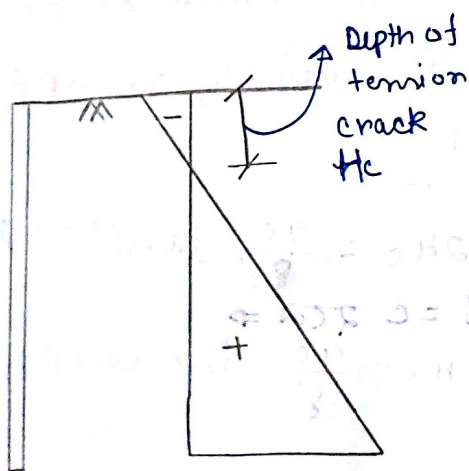 Depth of
tension
crack
Hc
-
+